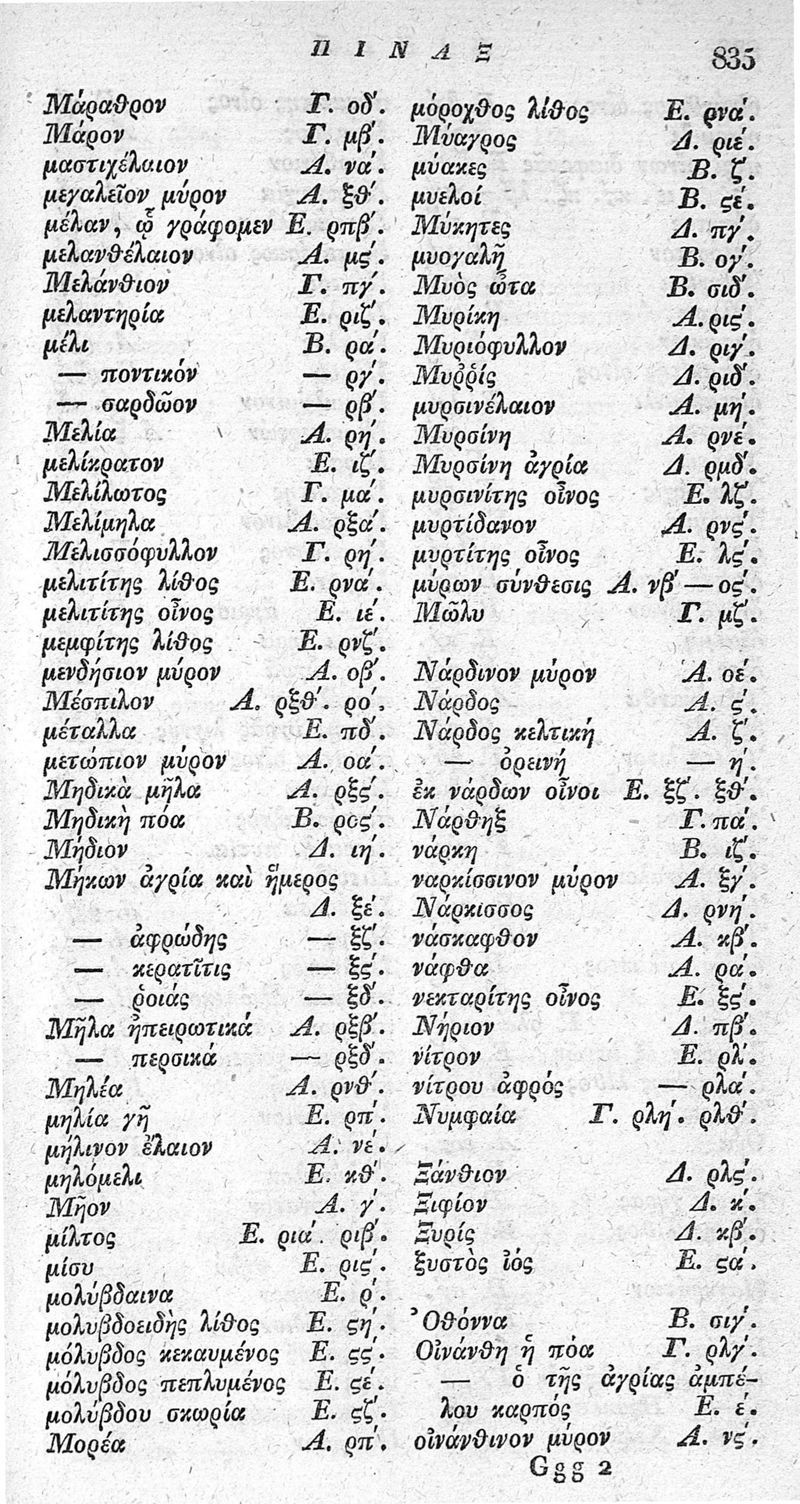 ΠΙΝΑΞ 835
Μάραθρον Γ. οδʹ.
Μάρον Γ. μβʹ.
μαστιχέλαιον Α. ναʹ.
μεγαλεῖον μύρον Α. ξθʹ.
μέλαν, ᾧ γράφομεν Ε. ρπβʹ.
μελανθέλαιον Α. μςʹ.
Μελάνθιον Γ. πγʹ.
μελαντηρία Ε. ριζʹ.
μέλι Β. ραʹ.
— ποντικόν — ργʹ.
— σαρδῶον — ρβʹ.
Μελία Α. ρηʹ.
μελίκρατον Ε. ιζʹ.
Μελίλωτος Γ. μαʹ.
Μελίμηλα Α. ρξαʹ.
Μελισσόφυλλον Γ. ρηʹ.
μελιτίτης λίθος Ε. ρναʹ.
μελιτίτης οἶνος Ε. ιέ.
μεμφίτης λίθος Ε. ρνζʹ.
μενδήσιον μύρον Α. οβʹ.
Μέσπιλον Α. ρξθʹ. ροʹ.
μέταλλα Ε. πδʹ.
μετώπιον μύρον Α. οαʹ.
Μηδικὰ μῆλα Α. ρξςʹ.
Μηδικὴ πόα Β. ροςʹ.
Μήδιον Δ. ιηʹ.
Μήκων ἀγρία καὶ ἥμερος
Δ. ξέ.
— ἀφρώδης — ξζʹ.
— κερατῖτις — ξςʹ.
— ῥοιάς — ξδʹ.
Μῆλα ἠπειρωτικά Α. ρξβʹ.
— περσικά — ρξδʹ.
Μηλέα Α. ρνθʹ.
μηλία γῆ Ε. ρπʹ.
μήλινον ἔλαιον Α. νέ.
μηλόμελι Ε. κθʹ.
Μῆον Α. γʹ.
μίλτος Ε. ριαʹ. ριβʹ.
μίσυ Ε. ριςʹ.
μολύβδαινα Ε. ρʹ.
μολυβδοειδὴς λίθος Ε. ϛηʹ.
μόλυβδος κεκαυμένος Ε. ϛςʹ.
μόλυβδος πεπλυμένος Ε. ϛέ.
μολύβδου σκωρία Ε. ϛζʹ.
Μορέα Α. ρπʹ.
μόροχθος λίθος Ε. ρναʹ.
Μύαγρος Δ. ριέ.
μύακες Β. ζʹ.
μυελοί Β. ϛέ.
Μύκητες Δ. πγʹ.
μυογαλῆ Β. ογʹ.
Μυὸς ὦτα Β. σιδʹ.
Μυρίκη Α. ριςʹ.
Μυριόφυλλον Δ. ριγʹ.
Μυῤῥίς Δ. ριδʹ.
μυρσινέλαιον Α. μηʹ.
Μυρσίνη Α. ρνέ.
Μυρσίνη ἀγρία Δ. ρμδʹ.
μυρσινίτης οἶνος Ε. λζʹ.
μυρτίδανον Α. ρνςʹ.
μυρτίτης οἶνος Ε. λςʹ.
μύρων σύνθεσις Α. νβʹ — οςʹ.
Μῶλυ Γ. μζʹ.
Νάρδινον μύρον Α. οέ.
Νάρδος Α. ςʹ.
Νάρδος κελτική Α. ζʹ.
— ὀρεινή — ηʹ.
ἐκ νάρδων οἶνοι Ε. ξζʹ. ξθʹ.
Νάρθηξ Γ. παʹ.
νάρκη Β. ιζʹ.
ναρκίσσινον μύρον Α. ξγʹ.
Νάρκισσος Δ. ρνηʹ.
νάσκαφθον Α. κβʹ.
νάφθα Α. ραʹ.
νεκταρίτης οἶνος Ε. ξςʹ.
Νήριον Δ. πβʹ.
νίτρον Ε. ρλʹ.
νίτρου ἀφρός — ρλαʹ.
Νυμφαία Γ. ρληʹ. ρλθʹ.
Ξάνθιον Δ. ρλςʹ.
Ξιφίον Δ. κʹ.
Ξυρίς Δ. κβʹ.
ξυστὸς ἰός Ε. ϛαʹ.
Ὀθόννα Β. σιγʹ.
Οἰνάνθη ἡ πόα Γ. ρλγʹ.
— ὁ τῆς ἀγρίας ἀμπέ-
λου καρπός Ε. έ.
οἰνάνθινον μύρον Α. νςʹ.
Ggg 2